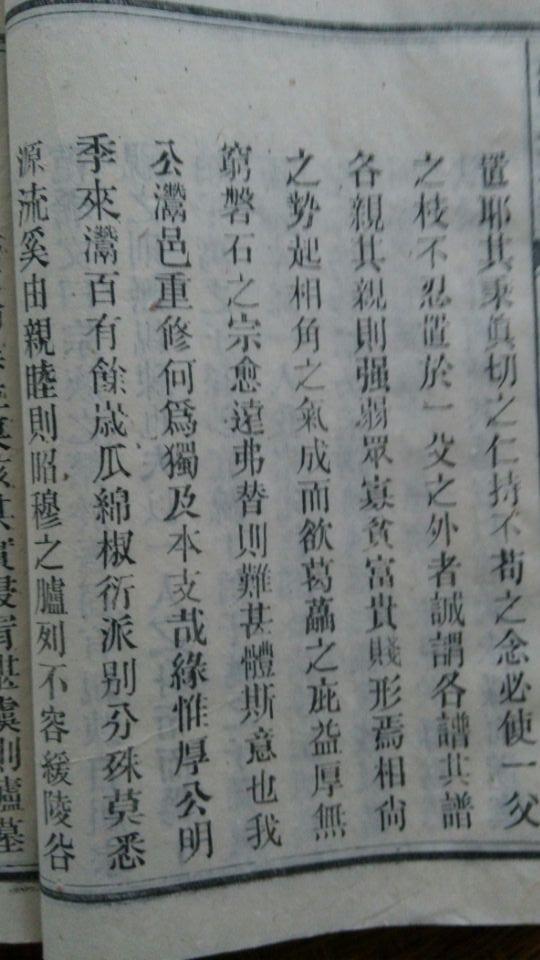 置耶其秉眞切之仁持不苟之念必使一父
之枝不忍置於一父之外者誠謂各譜其譜
各親其親則强弱眾寡貧富貴賤形焉相尙
之勢起相角之氣成而欲葛藟之庇益厚無
窮磐石之宗愈遠弗替則難甚體斯意也我
公灊邑重修何爲獨及本支哉緣惟厚公明
季來灊百有餘歲瓜綿椒衍派别分殊莫悉
源流奚由親睦則昭穆之臚列不容緩陵谷